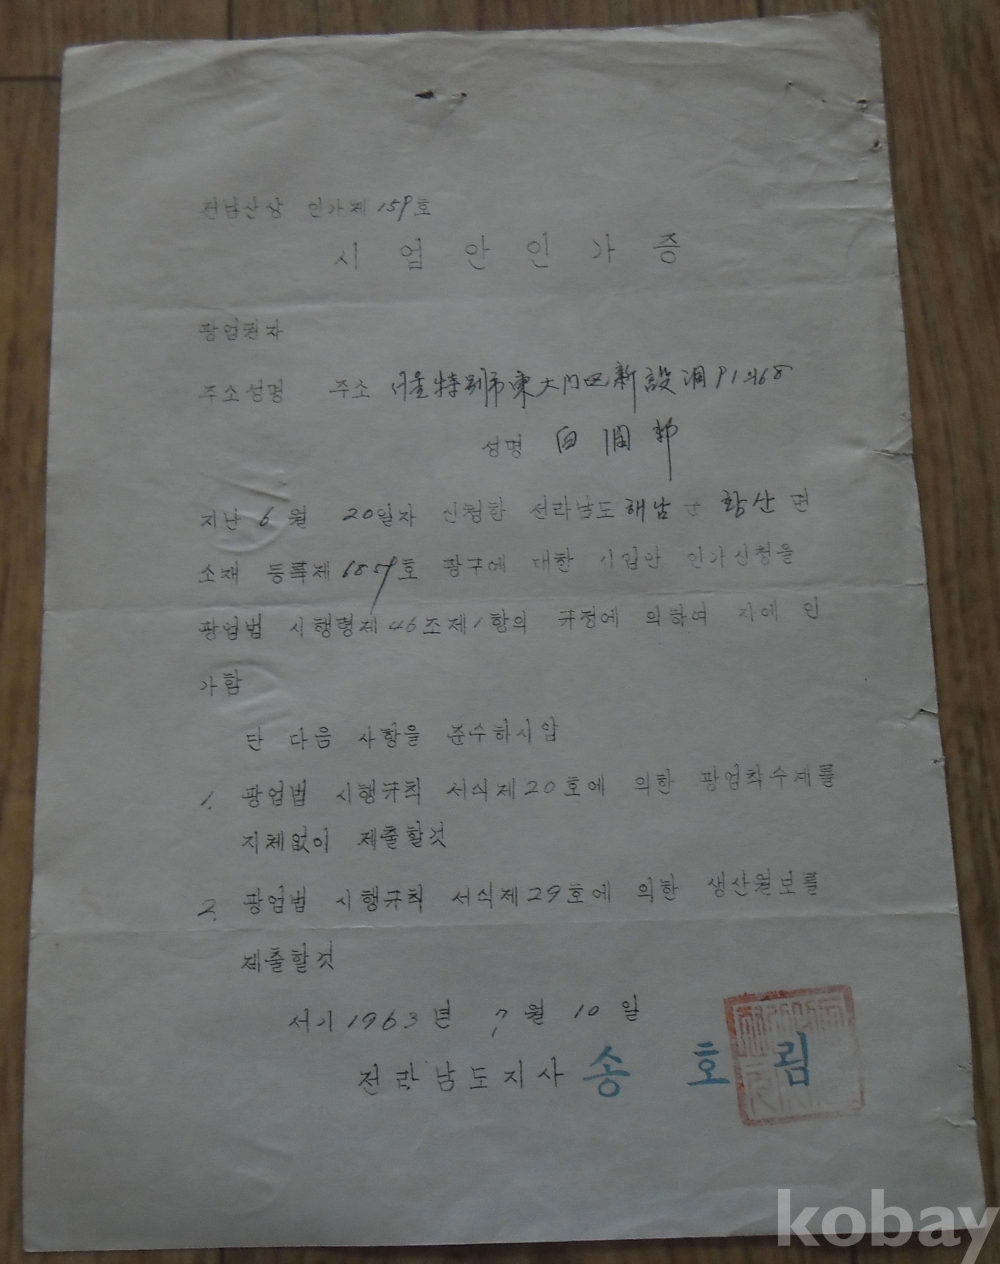 전남산상 인가제 159호
시업안인가증
광업권자
주소성명 주소 서울特別市東大門區新設洞
성명 白潤
지난 6월 20일자 신청한 전라남도 해남군 황산면
소재 등록제 6859호 광구에 대한 시업안 인가신청을
광업법 시행령제46조제1항의 규정에 의하여 자에 인
가함
단 다음 사항을 준수하시압
1. 광업법 시행규칙 서식제20호에 의한 광업착수계를
지체없이 제출할것
2. 광업법 시행규칙 서식제29호에 의한 생산월보를
제출할것
서기 1963년 7월 10일
전라남도지사 송호림
kobay